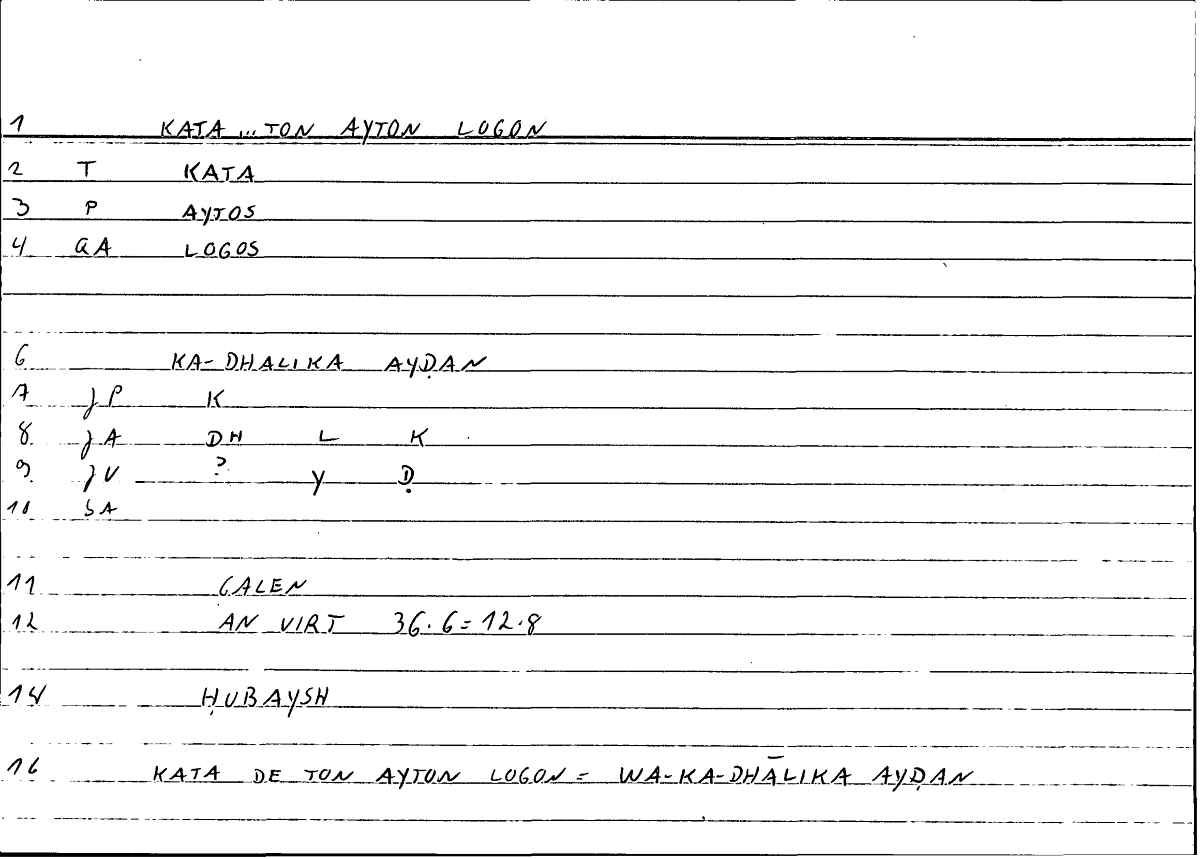 1 KATA ... TON AYTON LOGON
2 T KATA
3 P AYTOS
4 QA LOGOS
6 KA-DHALIKA AYḌAN
7 JP K
8. JA DH L K
9. JV ? Y Ḍ
10 SA
11 GALEN
12 AN VIRT 36.6=12.8
14 ḤUBAYSH
16 KATA DE TON AYTON LOGON = WA-KA-DHĀLIKA AYḌAN